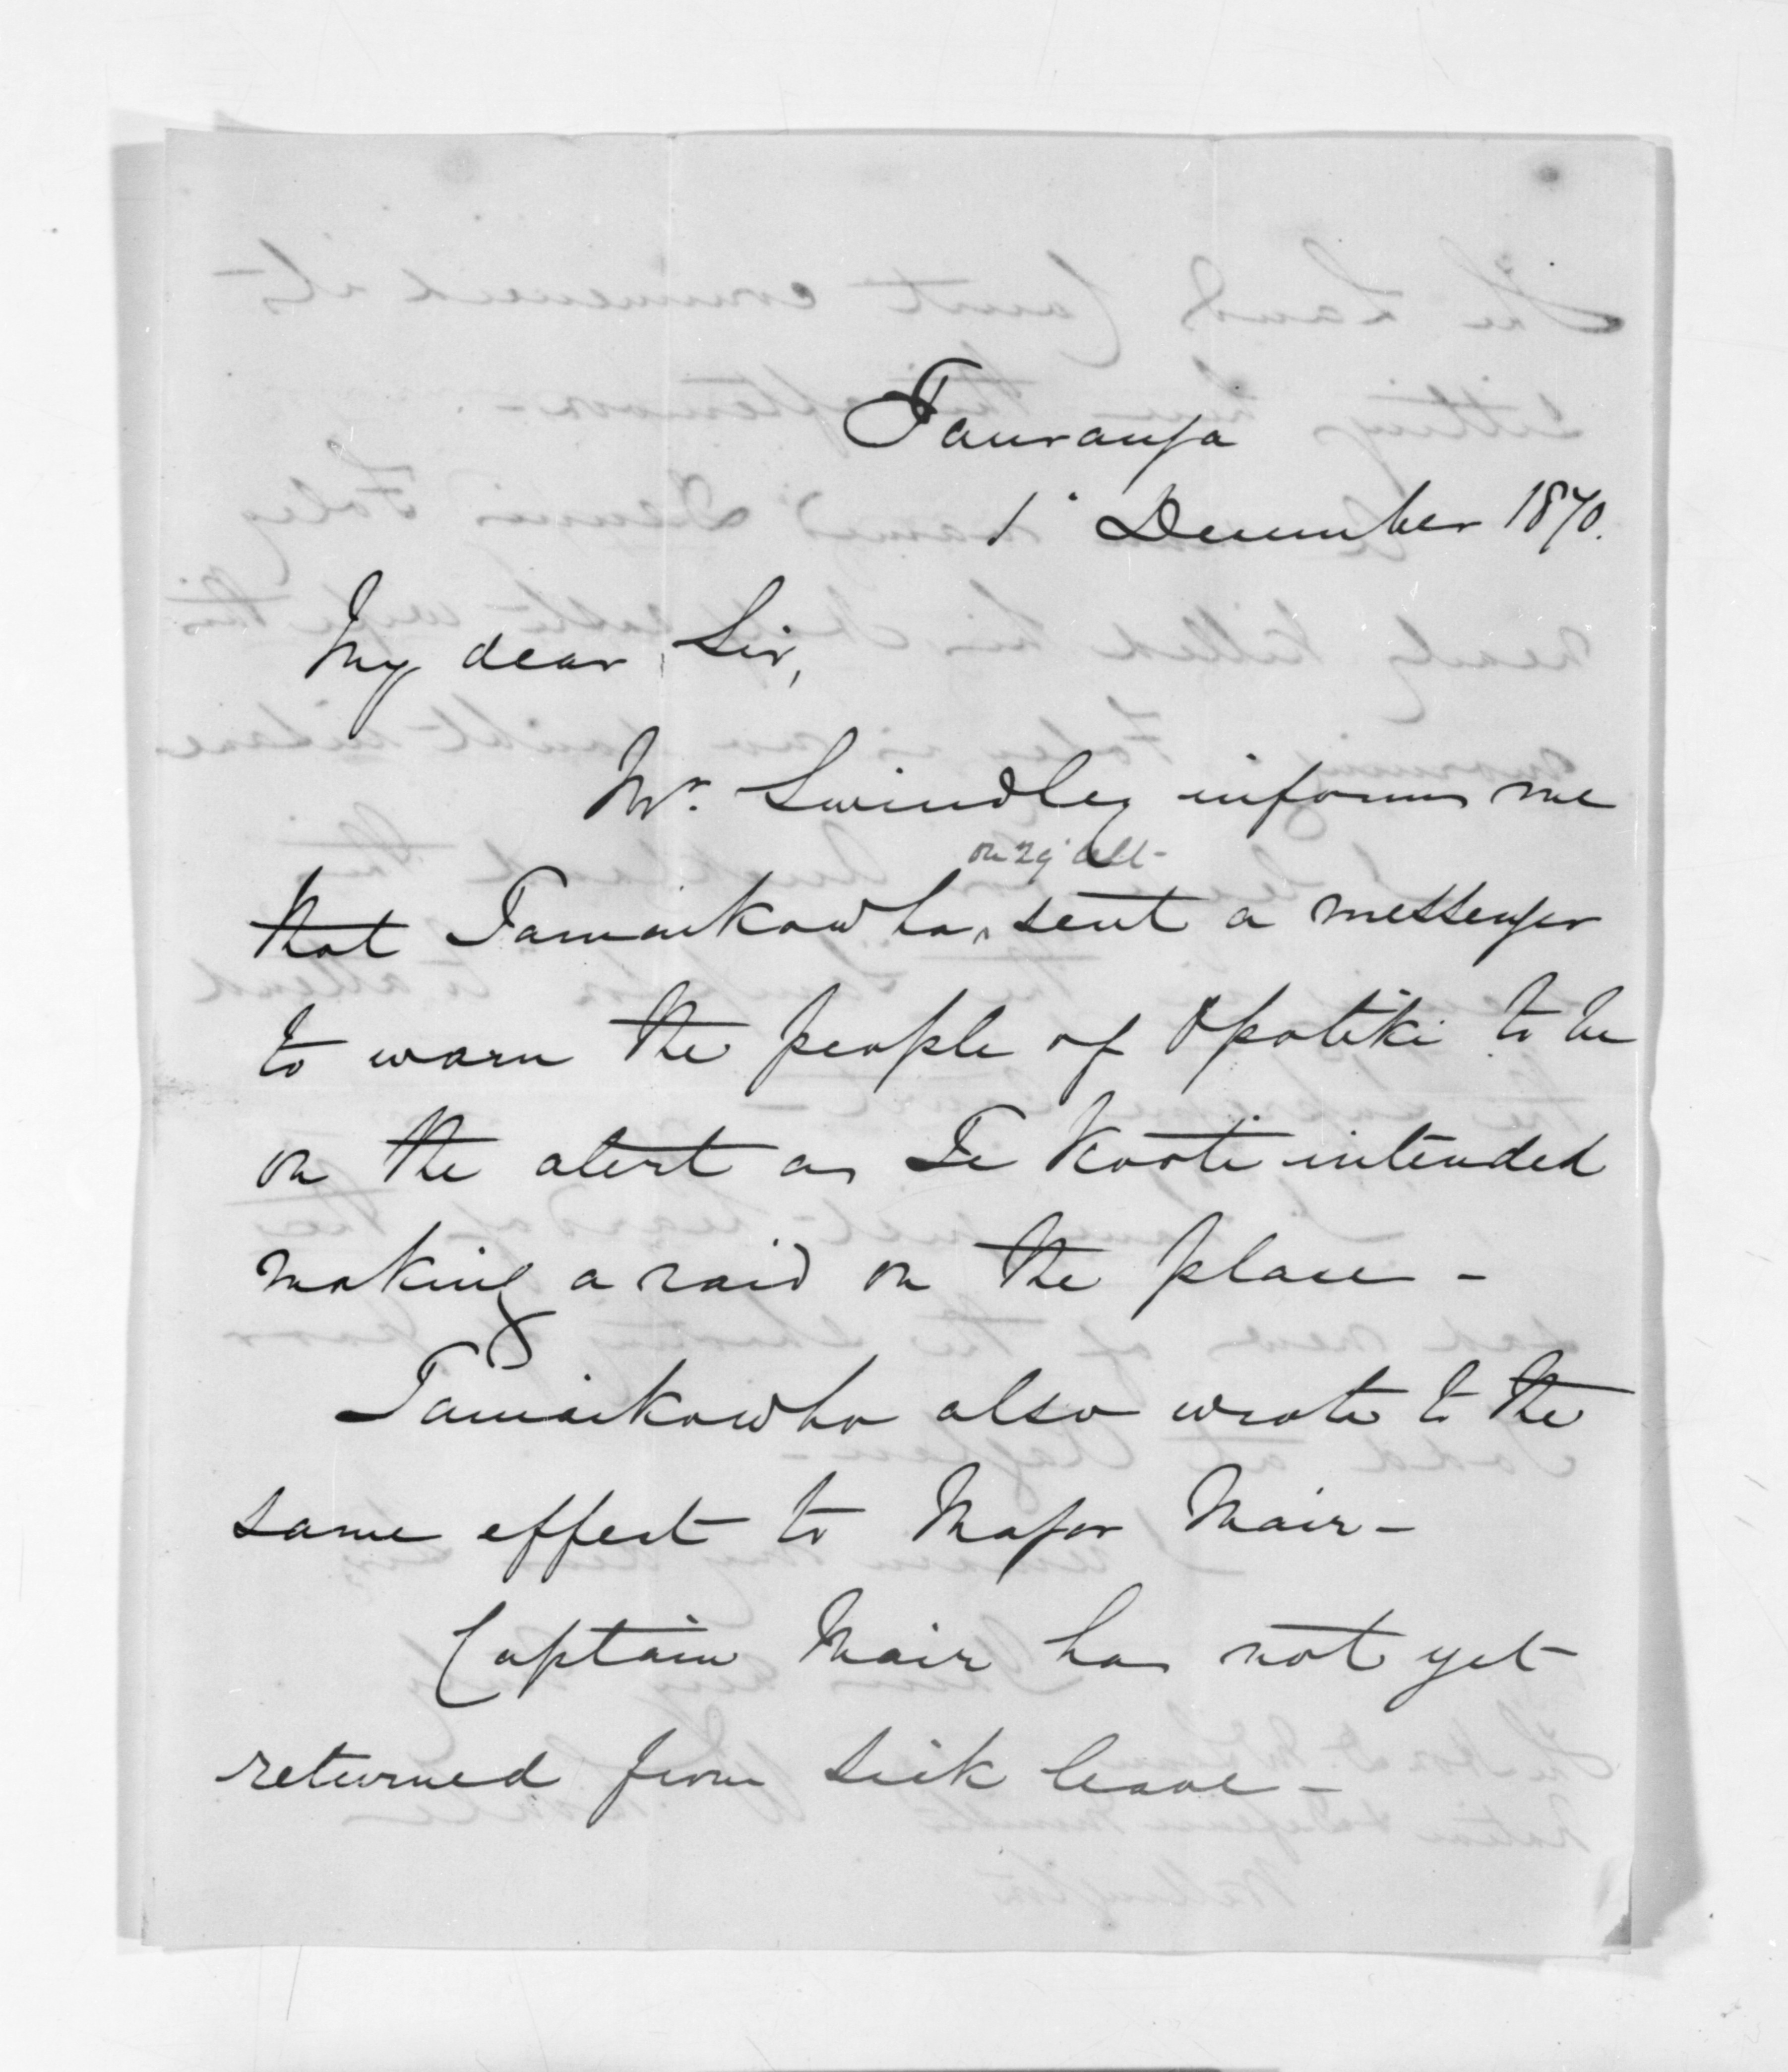 Tauranga
1' December 1870.
My dear Sir,
Mr. Swindley informs me
on 29' ult-
that Tamaikowha sent a messenger
to warn the people of Opotiki to be
on the alert as Te Kooti intended
making a raid on the place -
Tamaikowha also wrote to the
same effect to Major Mair -
Captain Mair has not yet
returned from sick leave -